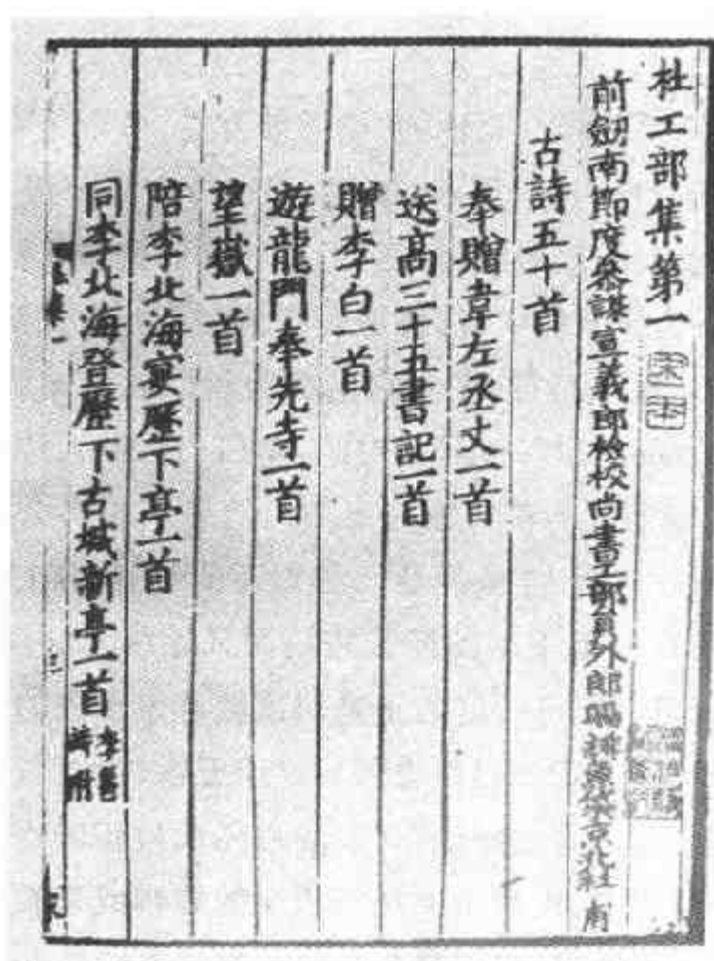 杜工部集第一 宋本
前劒南節度參謀宣義郎檢校尚書工部員外郎賜緋魚袋京兆杜 甫
古詩五十首
奉贈韋左丞丈一首
送高三十五書記一首
贈李白一首
遊龍門奉先寺一首
望嶽一首
陪李北海宴歷下亭一首
同李北海登歷下古城新亭一首 李邕詩附